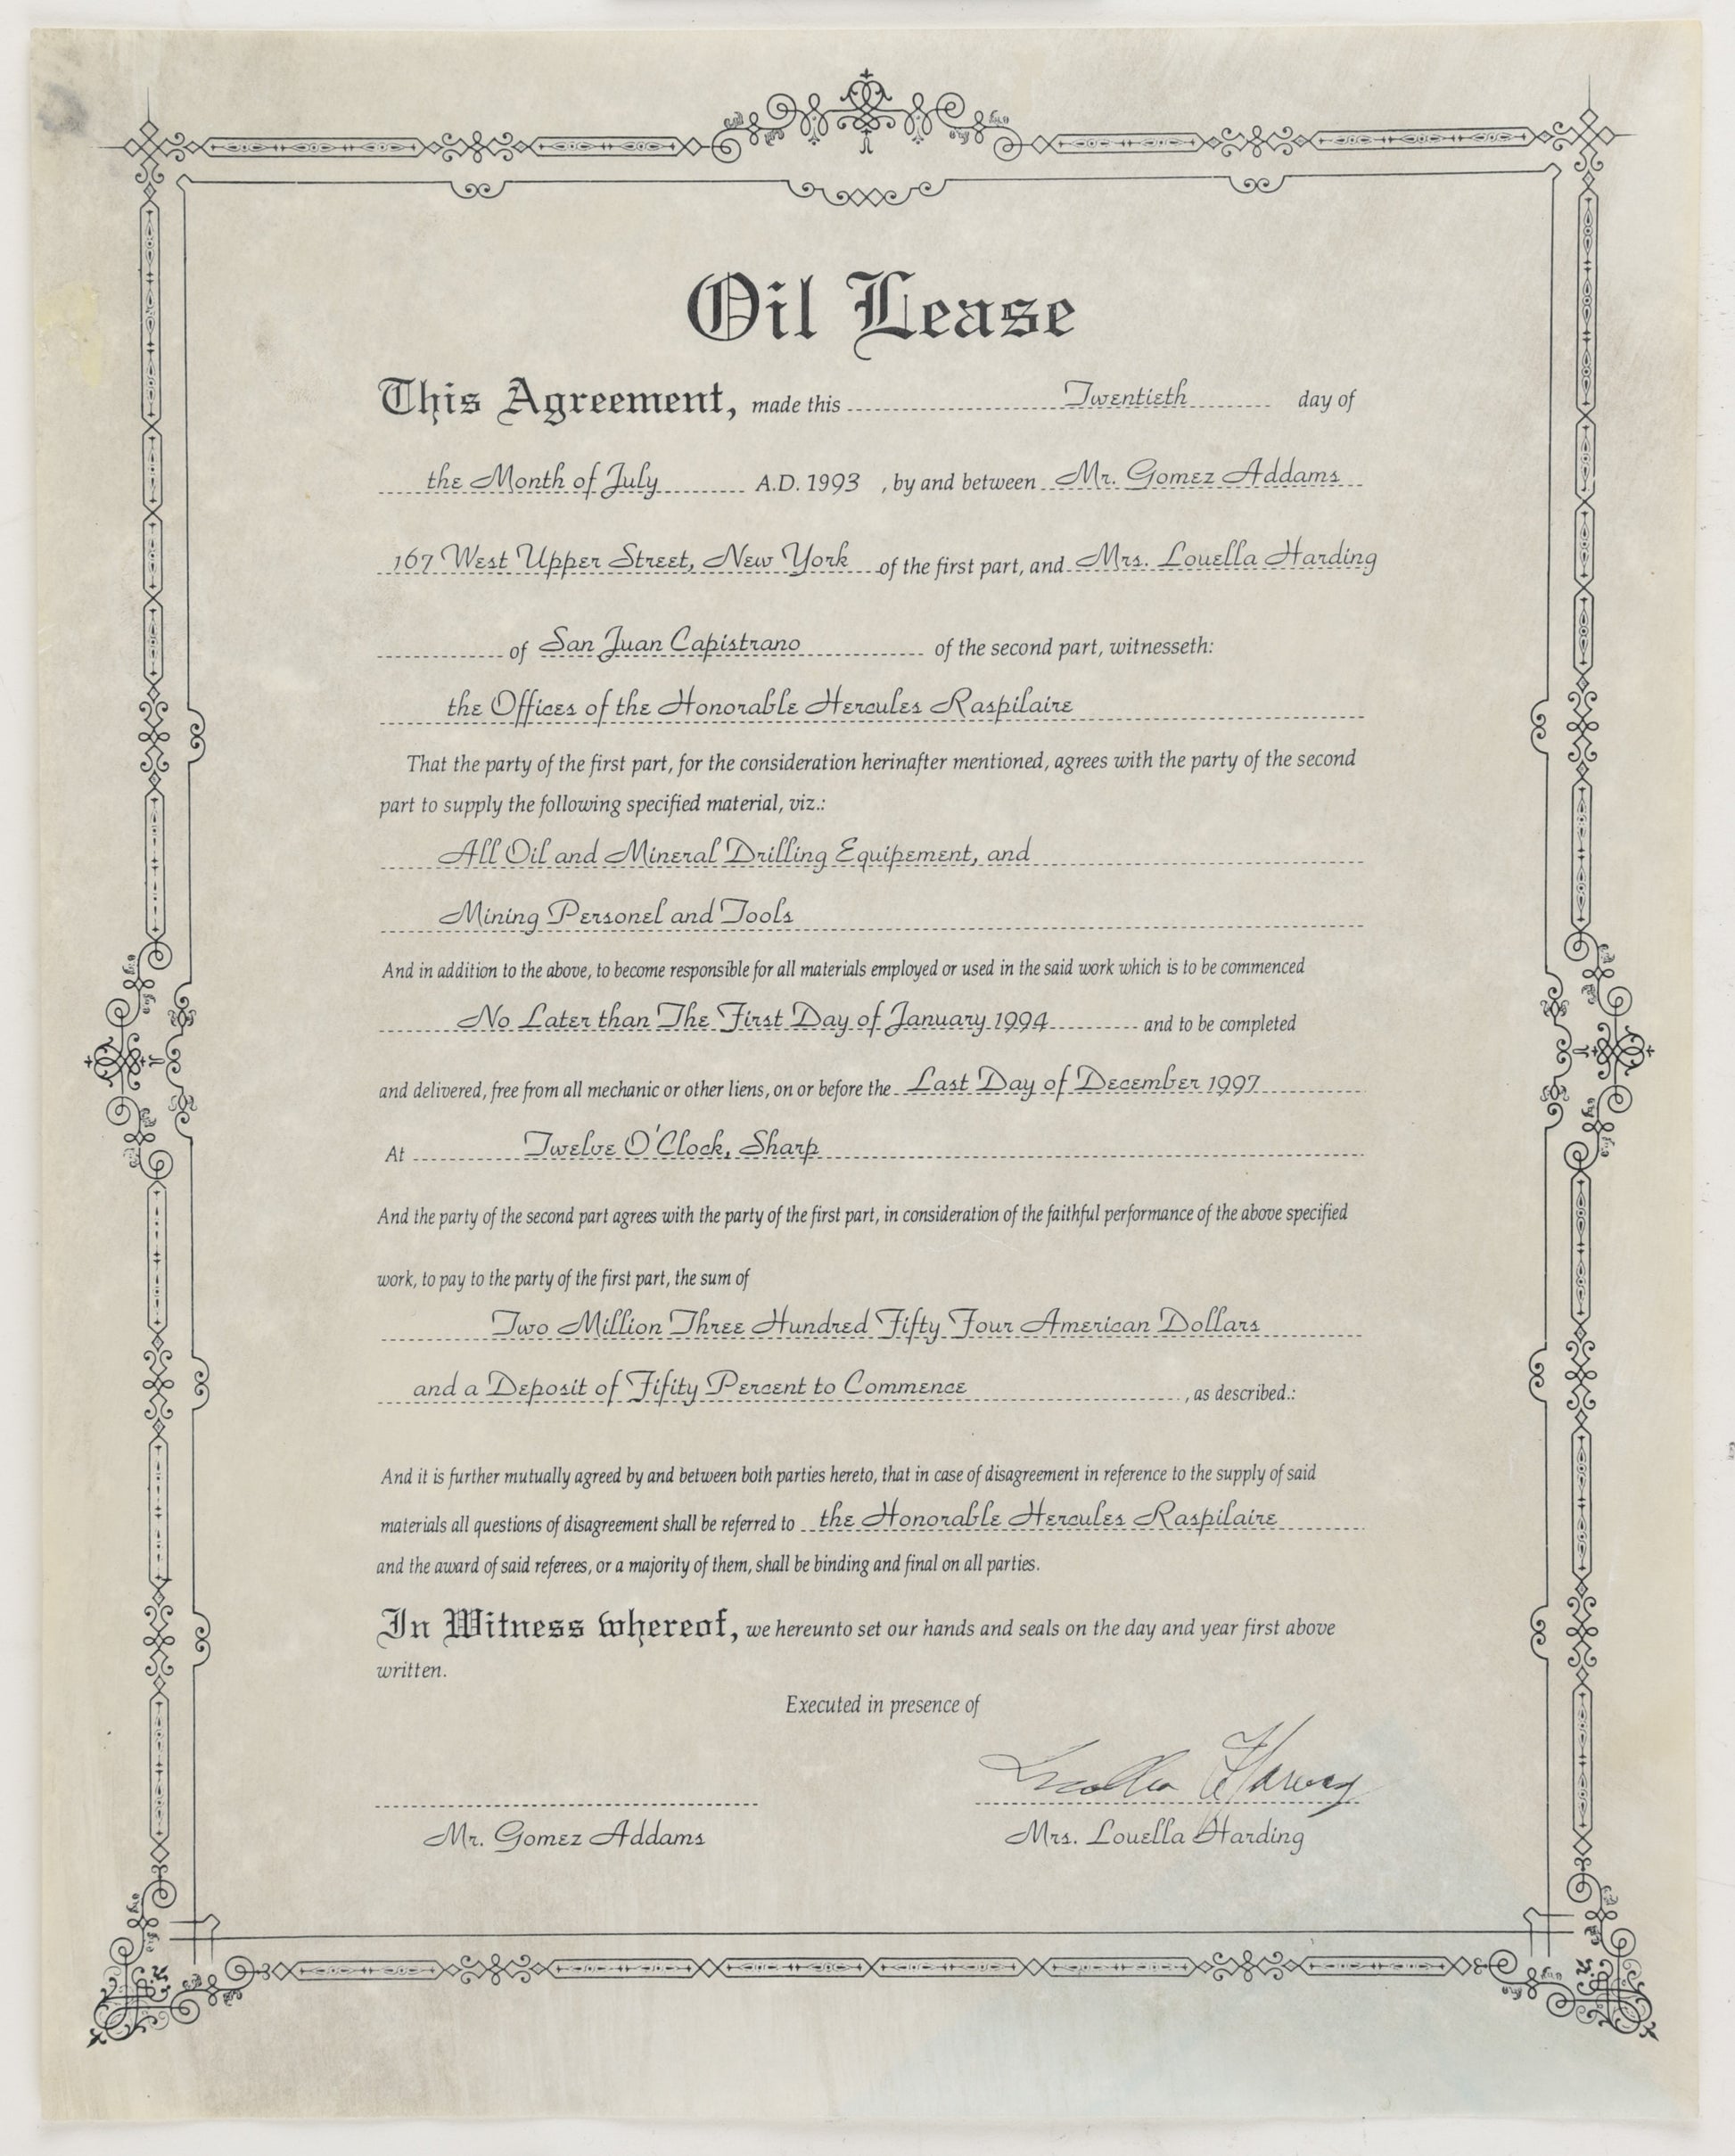 Oil Lease
This Agreement, made this Twentieth day of
the Month of July A.D. 1993 , by and between Mr. Gomez Addams
167 West Upper Street, New York of the first part, and Mrs. Louella Harding
of San Juan Capistrano of the second part, witnesseth:
the Offices of the Honorable Hercules Raspilaire
That the party of the first part, for the consideration herinafter mentioned, agrees with the party of the second
part to supply the following specified material, viz.:
All Oil and Mineral Drilling Equipement, and
Mining Personel and Tools
And in addition to the above, to become responsible for all materials employed or used in the said work which is to be commenced
No Later than The First Day of January 1994 and to be completed
and delivered, free from all mechanic or other liens, on or before the Last Day of December 1997
At Twelve O'Clock, Sharp
And the party of the second part agrees with the party of the first part, in consideration of the faithful performance of the above specified
work, to pay to the party of the first part, the sum of
Two Million Three Hundred Fifty Four American Dollars
and a Deposit of Fifity Percent to Commence , as described.:
And it is further mutually agreed by and between both parties hereto, that in case of disagreement in reference to the supply of said
materials all questions of disagreement shall be referred to the Honorable Hercules Raspilaire
and the award of said referees, or a majority of them, shall be binding and final on all parties.
In Witness whereof, we hereunto set our hands and seals on the day and year first above
written.
Executed in presence of
Mr. Gomez Addams Mrs. Louella Harding